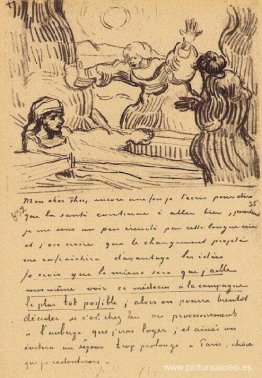 Mon cher Theo, encore une fois je t'écris pour dire
que la santé continue à aller bien, pourtant
je me sens un peu éreinté par cette longue crise
et j'ose croire que le changement projeté
me rafraichira davantage les idées
Je crois que le mieux sera que j'aille
moi même voir ce médecin à la campagne
le plus tot possible, alors on pourra bientot
décider si c'est chez lui ou provisoirement
à l'auberge que j'irai loger, et ainsi on
évitera un séjour trop prolongé à Paris, chose
que je redouterais.
www.pinturaaloleo.es